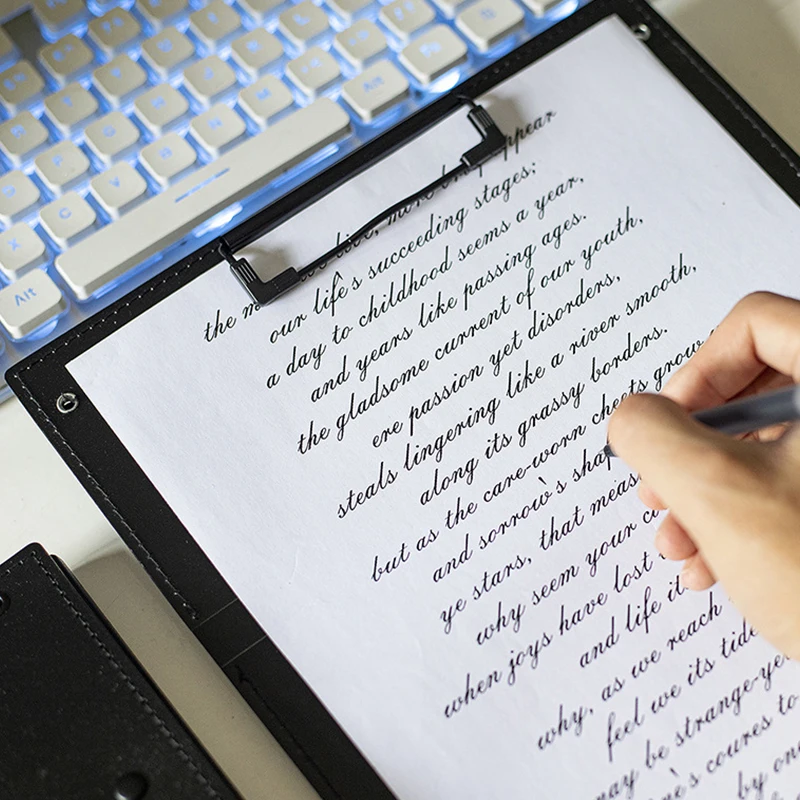 Alt
Alt
X C V B N M
the we live, more appear
our life's succeeding stages;
a day to childhood seems a year,
and years like passing ages.
the gladsome current of our youth,
ere passion yet disorders,
steals lingering like a river smooth,
along its grassy borders.
but as the care-worn cheets grow
and sorrow's
ye stars, that
why seem your
when joys have lost
and life
why, as we reach
feel we its
may be
coures to
by